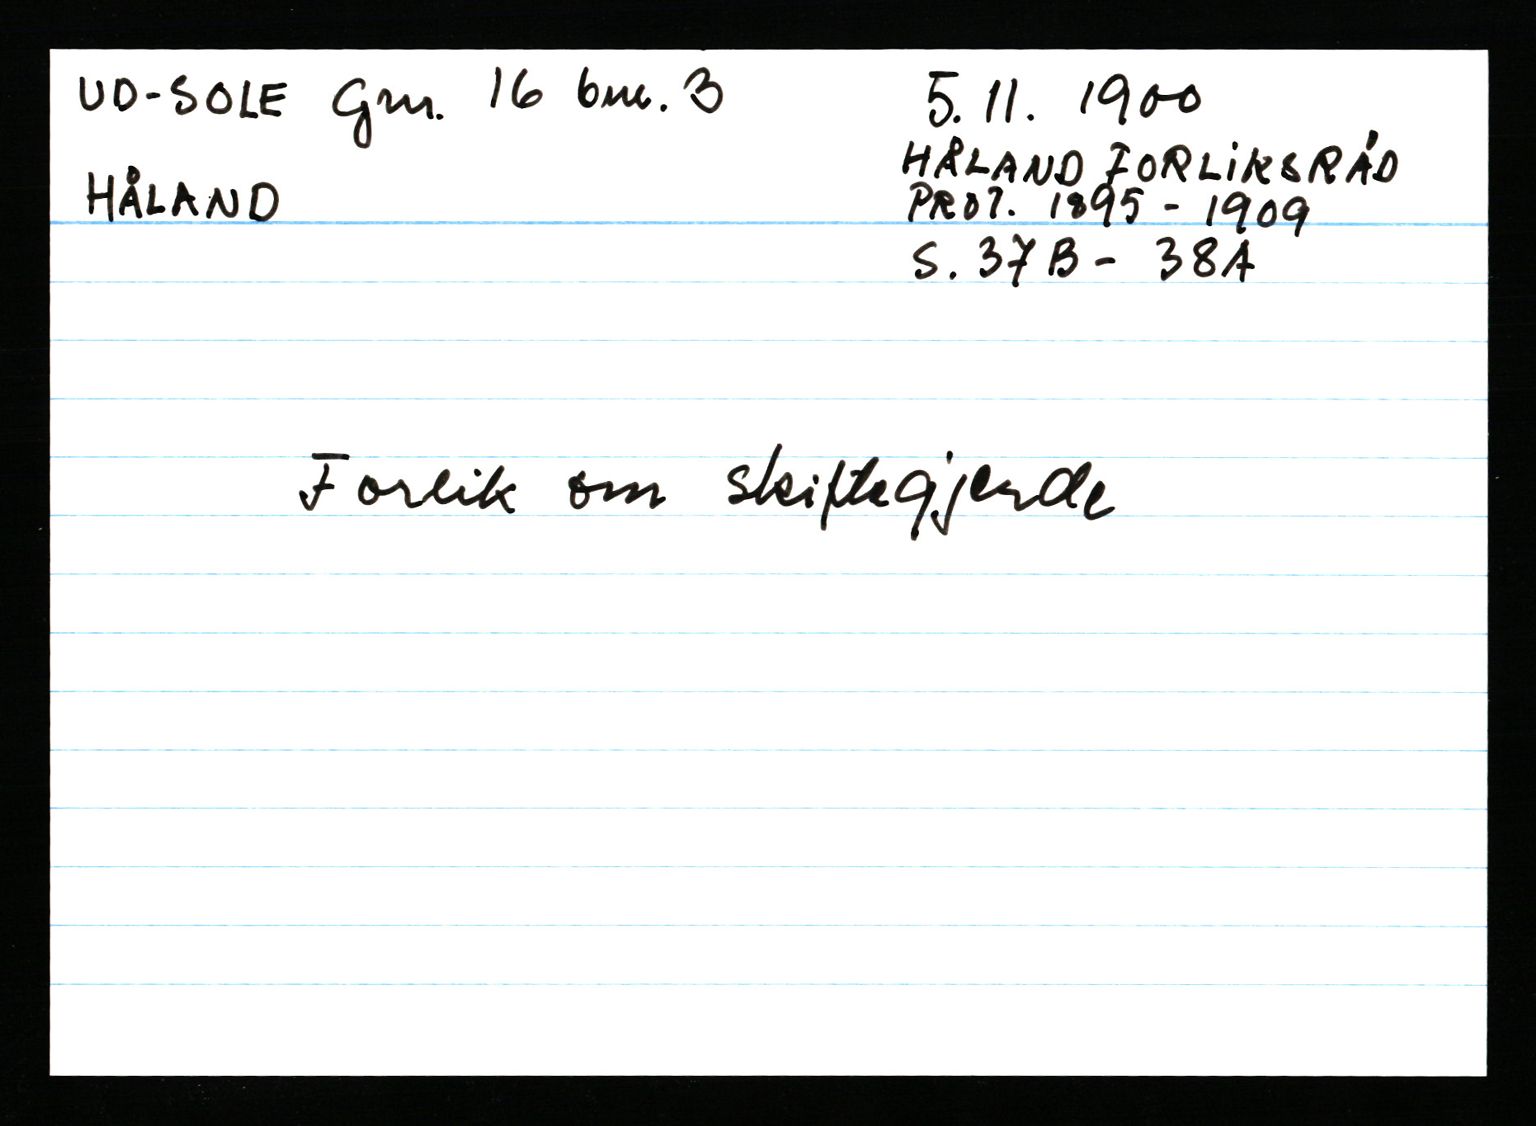 UD-SOLE Gnr. 16 bnr. 3
HÅLAND
5.11. 1900
HÅLAND FORLIKSRÅD
PROT. 1895 - 1909
S. 37B - 38A
Forlik om skiftegjerde